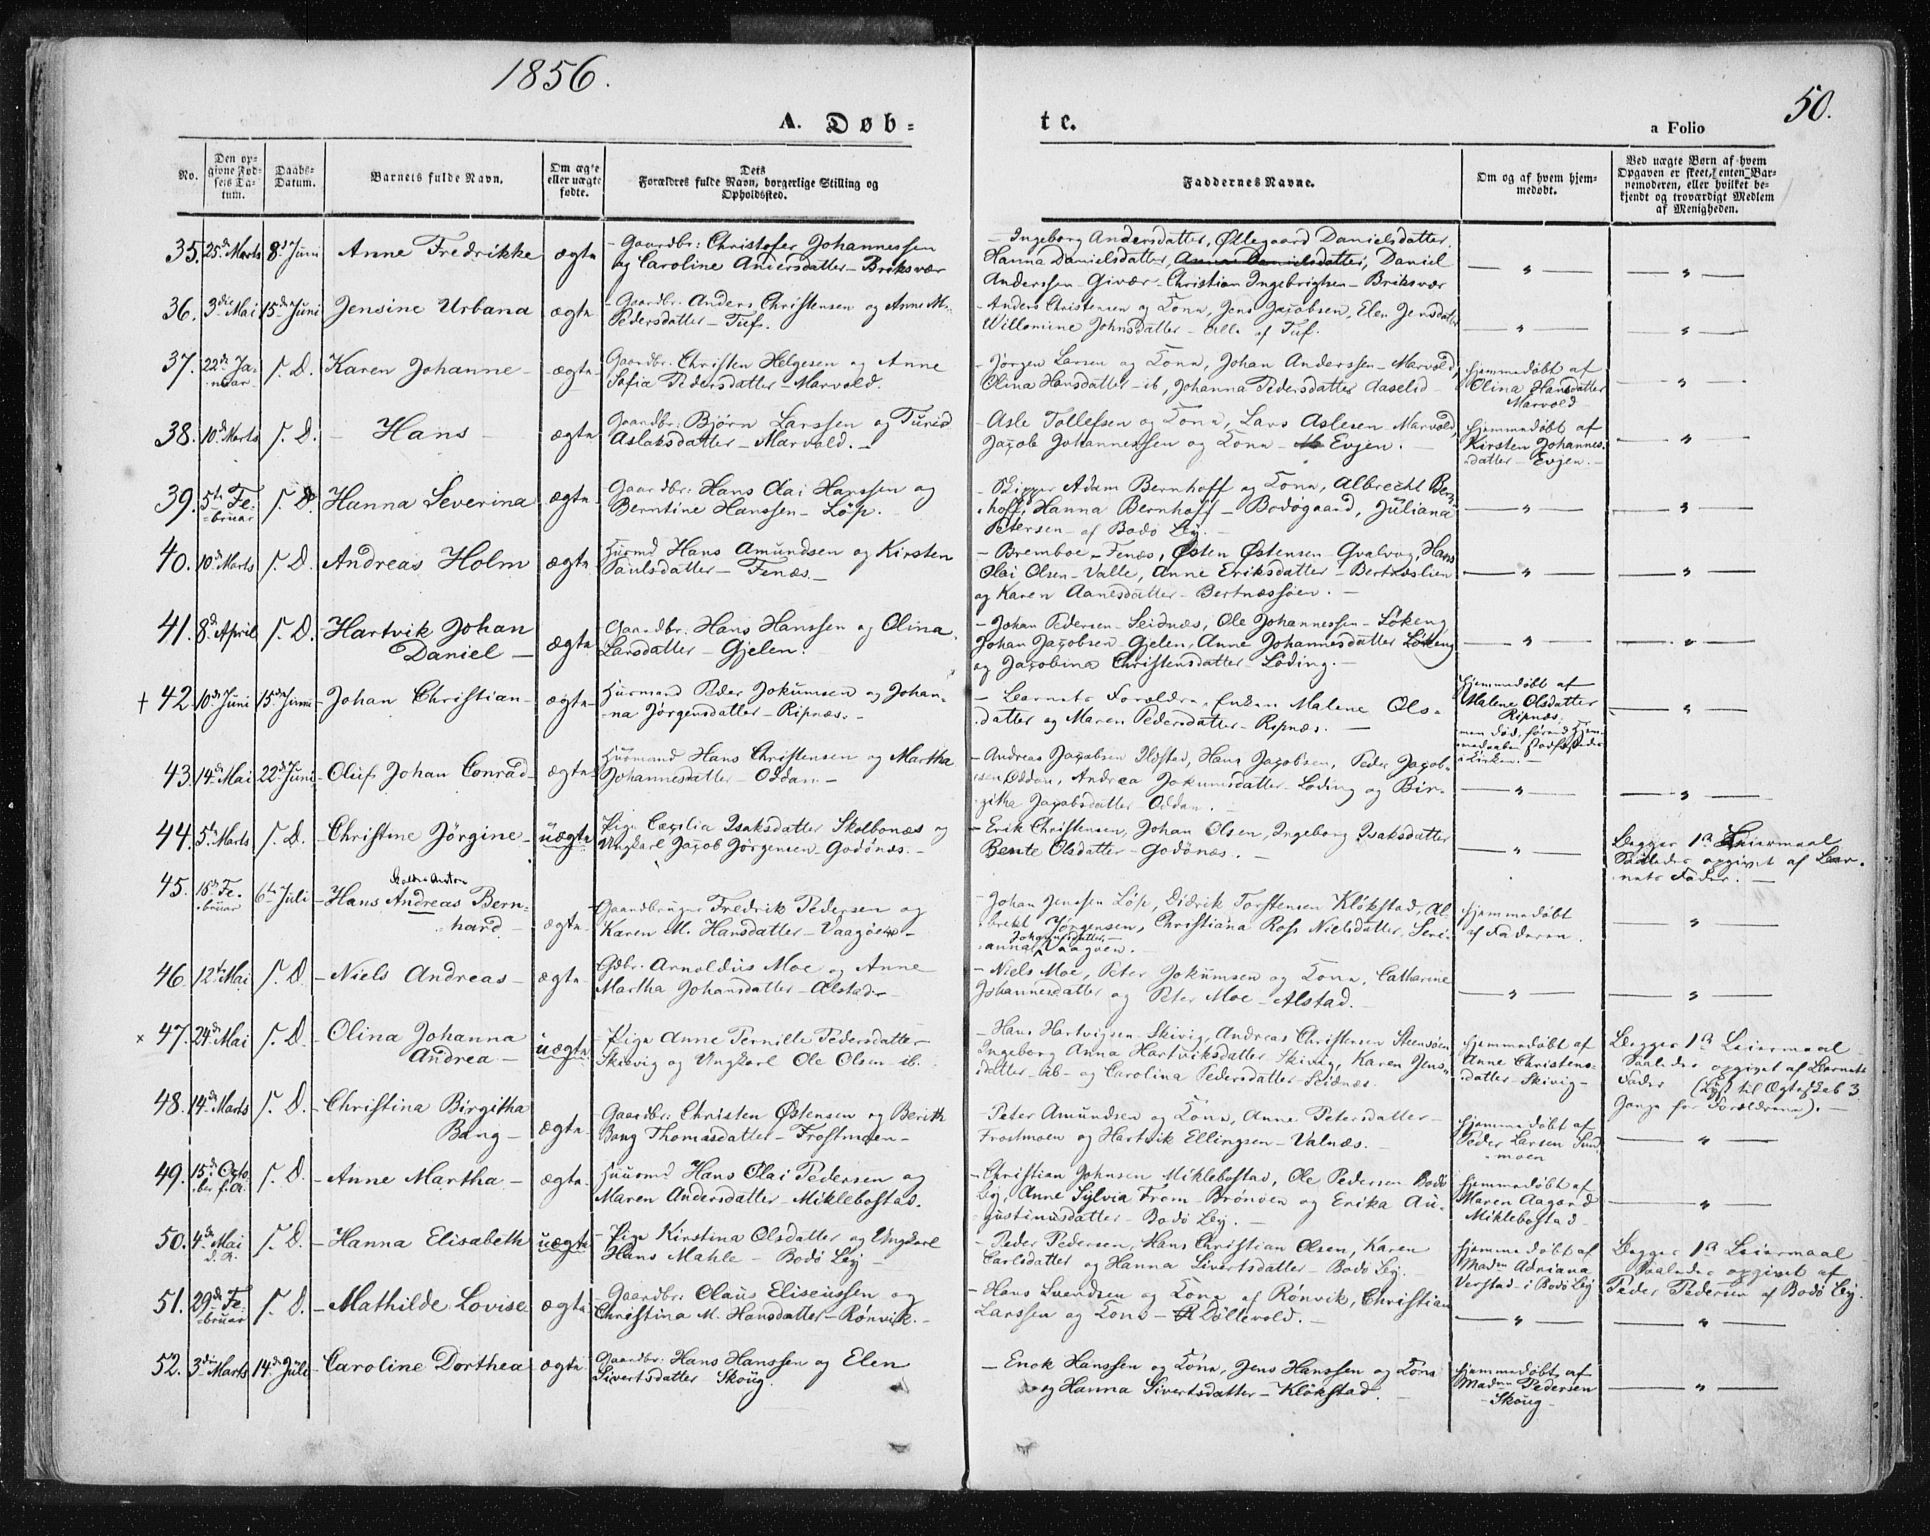 1856.
50.
A. Døb=
te.
a Folio
No.
Den op=
givne Fød=
sels Da=
tum.
Daabs=
Datum.
Barnets fulde Navn.
Om ægte
eller uægte
fødte.
Dets
Forældres fulde Navn, borgerlige Stilling og
Opholdssted.
Faddernes Navne.
Om og af hvem hjem=
medøbt.
Ved uægte Børn af hvem
Opgaven er skeet, enten Bar=
nemoderen, eller hvilket be=
kjendt og troværdigt Medlem
af Menigheden.
35. 25de Marts 8de Juni Anne Fredrikke ægte
- Gaardbr: Christofer Johannessen
og Caroline Andersdatter - Briksvær
- Ingeborg Andersdatter, Øllegaard Danielsdatter,
Hanna Danielsdatter, Anna Danielsdatter, Daniel
Anderssen - Givær. Christian Ingebrigtsen - Briksvær
36. 3die Mai 15de Juni Jensine Urbana ægte
- Gaardbr: Anders Christensen og Anne M.
Pedersdatter - Tuf.
- Anders Christensen og Kona, Jens Jacobsen, Elen Jensdatter
Willomine Johnsdatter - alle af Tuf.
37. 22de Ja=
nuar S. D. Karen Johanne - ægte
Gaardbr: Christen Helgesen og Anne
Sofia Pedersdatter - Marvold.
- Jørgen Larsen og Kona, Johan Anderssen - Marvold,
Olina Hansdatter - ib, Johanna Pedersdatter Aaselid
hjemmedøbt af
Olina Hansdatter
Marvold
38. 10de Marts S. D. - Hans - ægte
Gaardbr: Bjørn Larssen og Turid
Aslaksdatter - Marvold. -
- Asle Tollefsen og Kona, Lars Aslesen - Marvold,
Jacob Johannessen og Kona - ib Evjen. -
hjemmedøbt af
Kirsten Johannes=
datter - Evjen. -
39. 5te Fe=
bruar S. D. Hanna Severina ægte
Gaardbr: Hans Olai Hanssen og
Berntine Hanssen - Løp.
- Skipper Adam Bernhoff og Kona, Albrecht Bern=
hoff, Hanna Bernhoff - Bodøgaard, Juliana
Petersen - af Bodø By. -
40. 10de Marts S. D. Andreas Holm ægte
Huusmd Hans Amundsen og Kirsten
Paulsdatter - Fenæs -
- Bremboe - Fenæs, Østen Østensen - Gvalvog, Hans
Olai Olsen - Valle, Anne Eriksdatter - Bertnæslien
og Karen Aanesdatter - Bertnæssøen. -
41. 8de April S. D. Hartvik Johan
Daniel - ægte
Gaardbr: Hans Hanssen og Olina
Larsdatter - Gjelen.
- Johan Pedersen - Seidnæs, Ole Johannessen - Løkeng
Johan Jacobsen Gjelen, Anne Johannesdatter Løkeng
og Jacobina Christensdatter - Løding. -
+ 42. 10de Juni 15de Juni - Johan Christian - ægte
Huusmand Peder Jokumsen og Johan=
na Jørgensdatter - Ripnæs. -
- Barnets Forældre, Enken Malene Ols=
datter og Maren Pedersdatter - Ripnæs. -
Hjemmedøbt af
Malene Olsdatter
Ripnæs.
men død, førend Hjem=
medaaben stadfæstedes
i Kirken. -
43. 14de Mai 22de Juni - Oluf Johan Conrad - ægte
Huusmand Hans Christensen og Martha
Johannesdatter - Oddan -
- Andreas Jacobsen Ildstad, Hans Jacobsen, Peder Jacob=
sen Oddan, Andrea Jokumsdatter - Løding og Bir=
githa Jacobsdatter - Oddan. -
44. 5te Marts S. D. - Christine Jørgine - uægte
Pige Cæcilia Isaksdatter Skolbonæs og
Ungkarl Jacob Jørgensen - Godønæs. -
- Erik Christensen, Johan Olsen, Ingeborg Isaksdatter
Bente Olsdatter - Godønæs. -
Begges 1ste Leiermaal
Saaledes opgivet af Bar=
nets Fader. -
45. 18de Fe=
bruar 6te Juli - Hans Andreas Bern=
hard - ægte
Gaardbruger Fredrik Pedersen og
Karen M. Hansdatter - Vaagøen -
- Johan Jenssen Løp, Didrik Torstensen Kløkstad, Al=
brekt Jørgensen, Christiana Ross Nielsdatter, Seri=
anna Johannesdatter - Vaagøen. -
hjemmedøbt
af Faderen.
46. 12te Mai S. D. - Niels Andreas - ægte
Gdbr: Arnoldus Moe og Anne
Martha Johansdatter - Alstad -
- Niels Moe, Peter Jokumsen og Kona, Catharine
Johannesdatter og Peter Moe - Alstad. -
× 47. 24de Mai S. D. - Olina Johanna
Andrea - uægte
- Pige Anne Pernille Pedersdatter -
Skivig og Ungkarl Ole Olsen ib.
- Hans Hartvigsen - Skivig, Andreas Christensen Steensøen
Ingeborg Anna Hartviksdatter Skivig, Karen Jens=
datter - ib - og Carolina Pedersdatter - Seidnæs.
hjemmedøbt af
Anne Christens=
datter - Skivig -
Begges 1ste Leiermaal
Saaledes opgivet af Barnets
Fader (Lyst til Ægteskab 3
Gange for Forældrene). -
48. 14de Marts S. D. - Christina Birgitha
Bang - ægte
Gaardbr: Christen Østensen og Berith
Bang Thomasdatter - Frostmoen -
- Peter Amundsen og Kona, Anne Petersdatter -
Frostmoen og Hartvik Ellingsen - Valnæs. -
hjemmedøbt af
Peder Larsen Sund=
moen
49. 15de Octo=
ber f. A. S. D. - Anne Martha - ægte
Huusmd Hans Olai Pedersen og
Maren Andersdatter - Miklebostad.
- Christian Johnsen Miklebostad, Ole Pedersen Bodø
By, Anne Sylvia From - Brønøen og Erika Au=
gustinusdatter - Bodø By. -
hjemmedøbt af
Maren Aagard
Miklebostad -
50. 4de Mai
d. A. S. D. - Hanna Elisabeth uægte
- Pige Kirstina Olsdatter og Ungkarl
Hans Mahle - Bodø By -
- Peder Pedersen, Hans Christian Olsen, Karen
Carlsdatter og Hanna Sivertsdatter - Bodø By. -
hjemmedøbt af
Madm Adriana
Verstad - i Bodø By
Begges 1ste Leiermaal
Saaledes opgivet af
Peder Pedersen af Bodø By.
51. 29de Fe=
bruar S. D. - Mathilde Lovise ægte
- Gaardbr: Claus Eliseussen og
Christina M. Hansdatter - Rønvik. -
- Hans Svendsen og Kona af Rønvik, Christian
Larssen og Kona - Bøllevold. -
52. 3die Marts 14de Juli - Caroline Dorthea ægte
Gaardbr: Hans Hanssen og Elen
Sivertsdatter Skoug.
- Enok Hanssen og Kona, Jens Hanssen og Kona
og Hanna Sivertsdatter - Kløkstad.
hjemmedøbt af
Madm Pedersen
- Skoug -